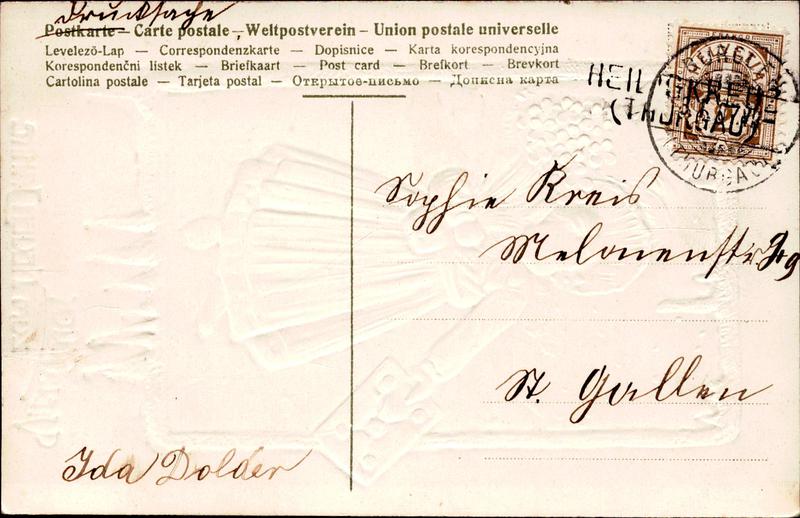 Drucksache
Postkarte — Carte postale — Weltpostverein — Union postale universelle
Levelező-Lap — Correspondenzkarte — Dopisnice — Karta korespondencyjna
Korespondenční listek — Briefkaart — Post card — Brefkort — Brevkort
Cartolina postale — Tarjeta postal — Открытое-письмо — Дописна карта
HELVETIA
HEILIGKREUZ
(THURGAU)
(THURGAU)
Sophie Kreis
Melonenstr.
St. Gallen
Ida Dolder